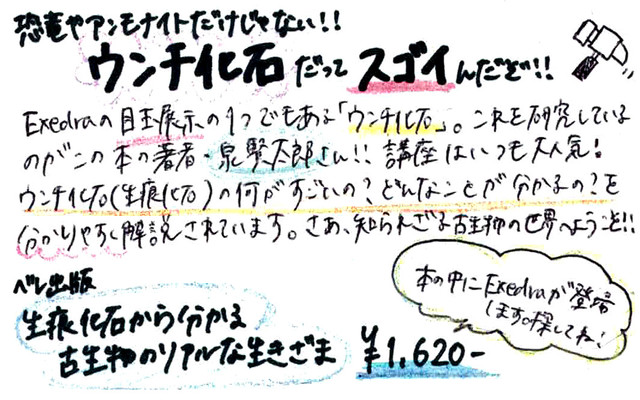 恐竜やアンモナイトだけじゃない!!
ウンチ化石だってスゴイんだぞ!!
Exedraの目玉展示の1つでもある「ウンチ化石」。これを研究している
のがこの本の著者・泉賢太郎さん!! 講座はいつも大人気!
ウンチ化石(生痕化石)の何がすごいの?どんなことが分かるの?を
分かりやすく解説されています。さあ、知られざる古生物の世界へようこそ!!
ベレ出版
生痕化石から分かる
古生物のリアルな生きざま
¥1,620-
本の中にExedraが登場
します。探してね!